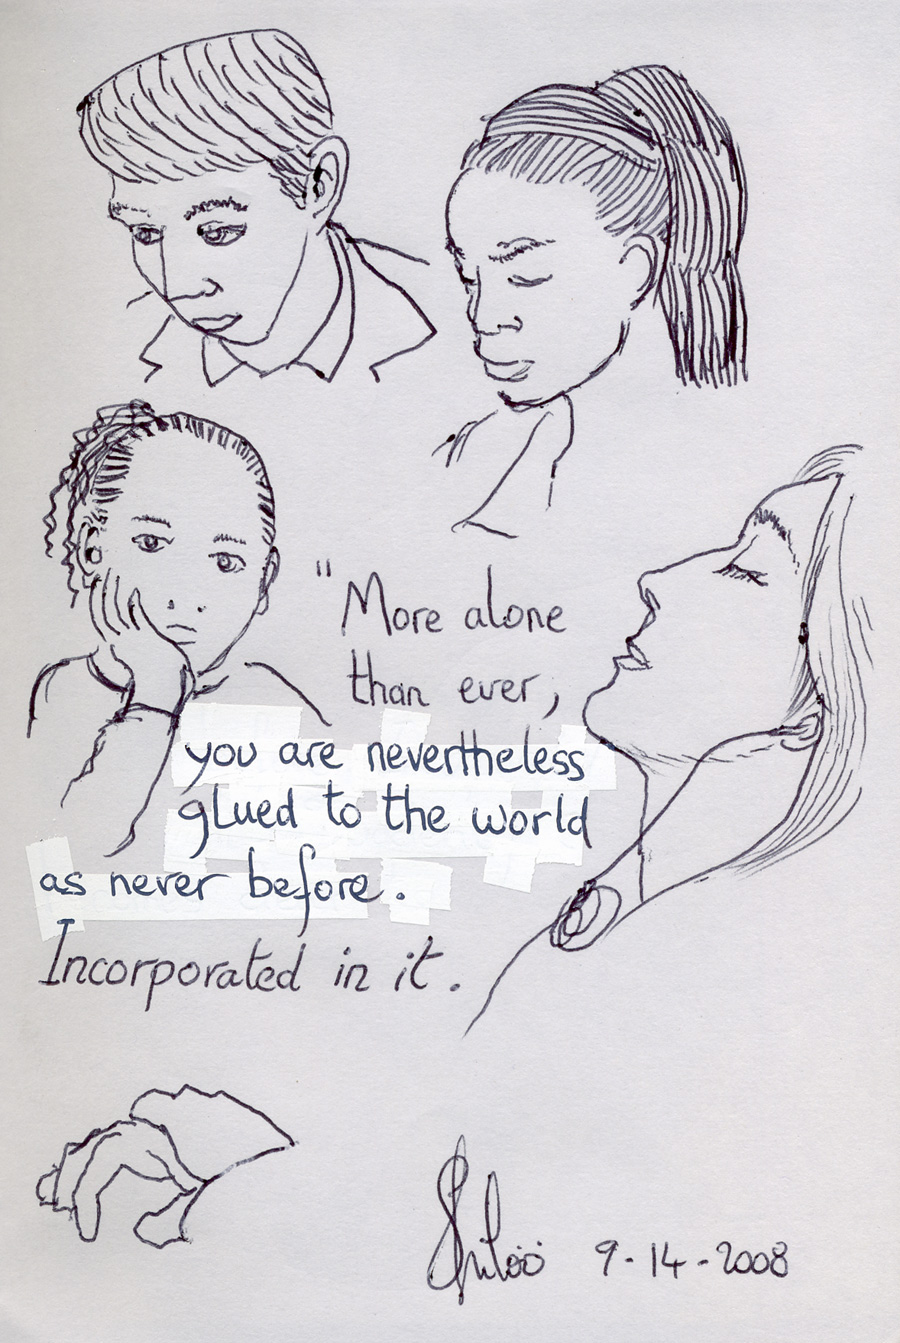 "More alone
than ever,
you are nevertheless
glued to the world
as never before.
Incorporated in it.
9-14-2008